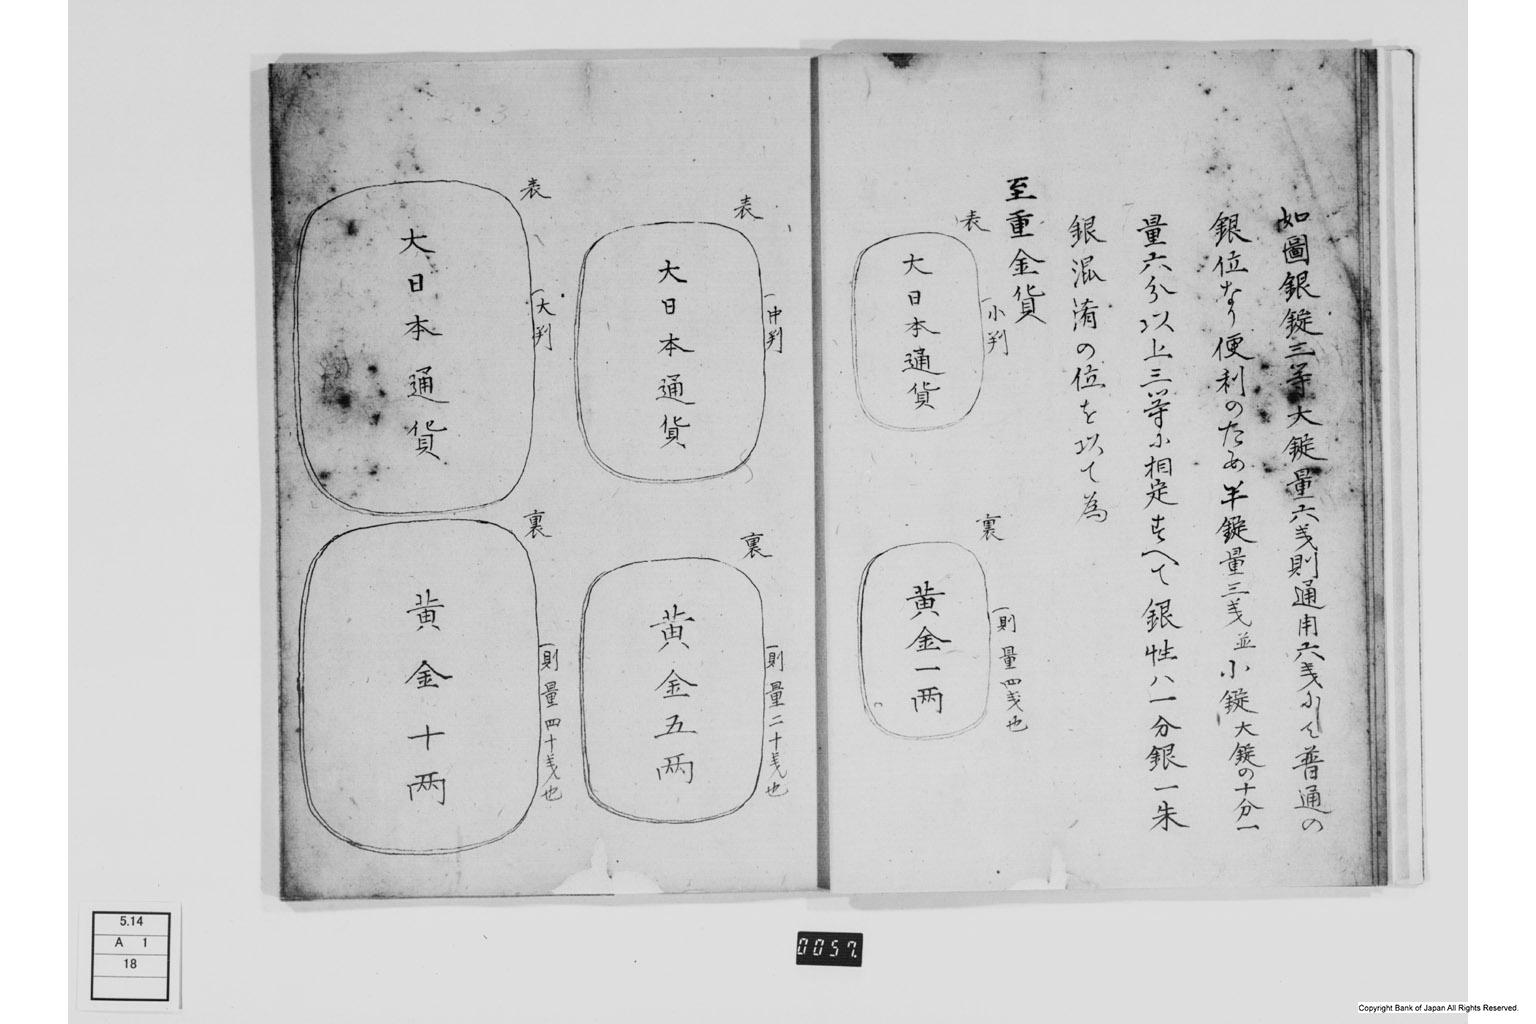 如圖銀錠三等大錠量六戔則通用六戔にして普通の
銀位なり便利のため半錠量三戔並小錠大錠の十分一
量六分以上三等に相定すへて銀性ハ一分銀一朱
銀混淆の位を以て為
至重金貨
表
小判
大日本通貨
裏
則量四戔也
黄金一两
表
中判
大日本通貨
裏
則量二十戔也
黄金五两
表
大判
大日本通貨
裏
則量四十戔也
黄金十两
5.14
A 1
18
0057.
Copyright Bank of Japan All Rights Reserved.